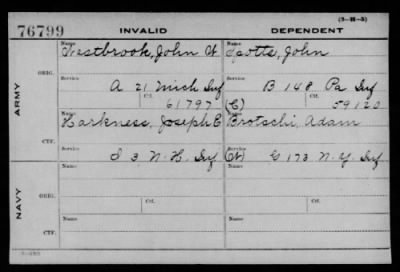 (3-H-3)
76799 INVALID DEPENDENT
Name Westbrook, John W Name Spotts, John
ORIG.
Service A 21 Mich Inf Service B 148 Pa Inf
Ctf. 61797 (C) Ctf. 59120
ARMY
Name Harkness, Joseph E Name Brotschi, Adam
CTF.
Service I 3 N.H. Inf (N) Service G 173 N.Y. Inf
Name Name
ORIG.
Service Service
Ctf. Ctf.
NAVY
Name Name
CTF.